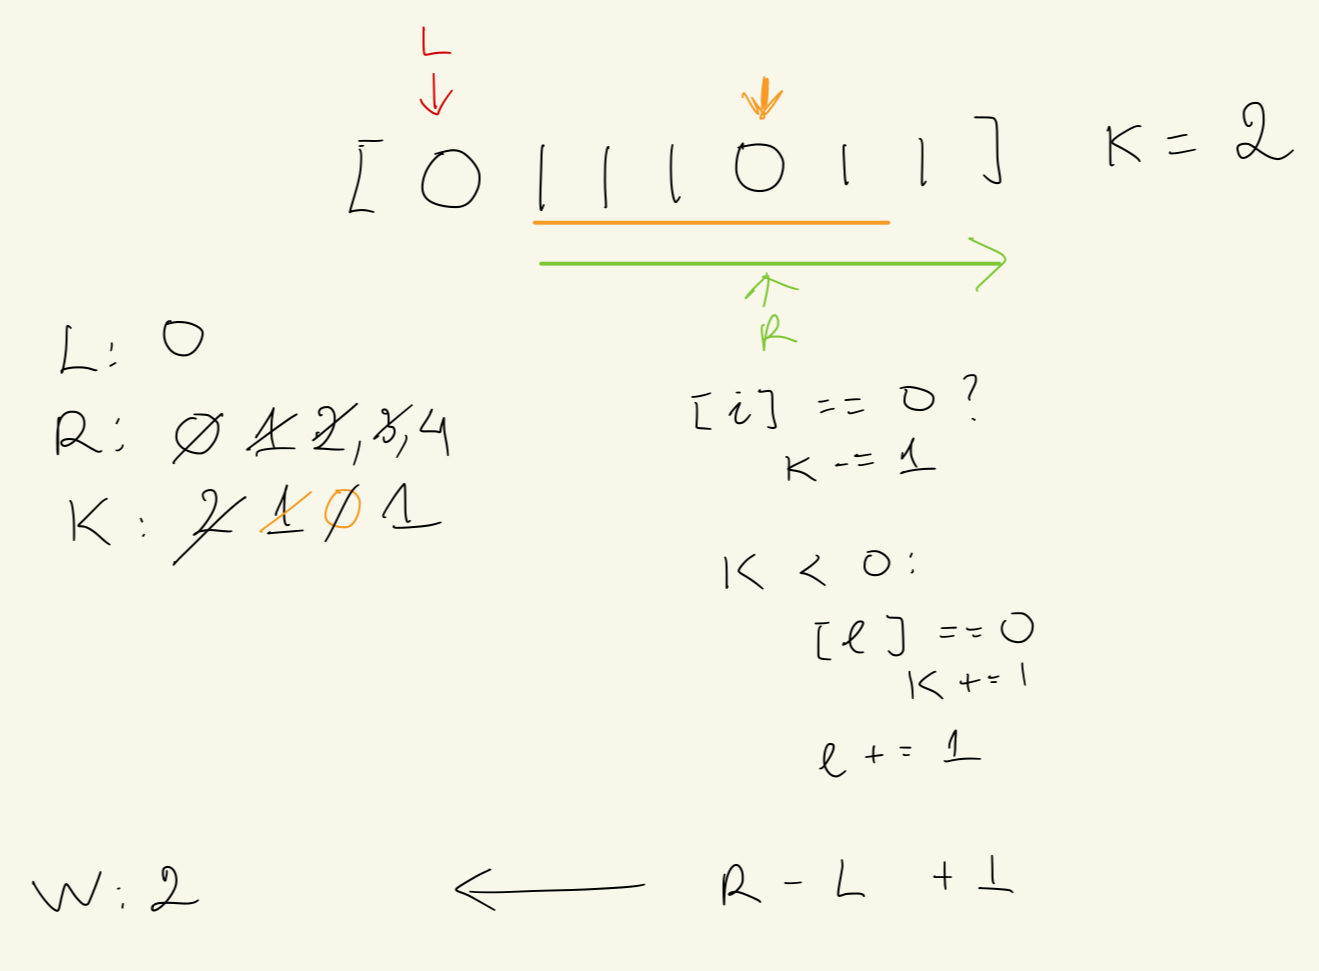 L
[ 0 1 1 1 0 1 1 ] K = 2
R
L: 0
[i] == 0 ?
R: 0 1 2, 3, 4
K -= 1
K: 2 1 0 1
K < 0:
[l] == 0
K += 1
l += 1
W: 2 ← R - L + 1